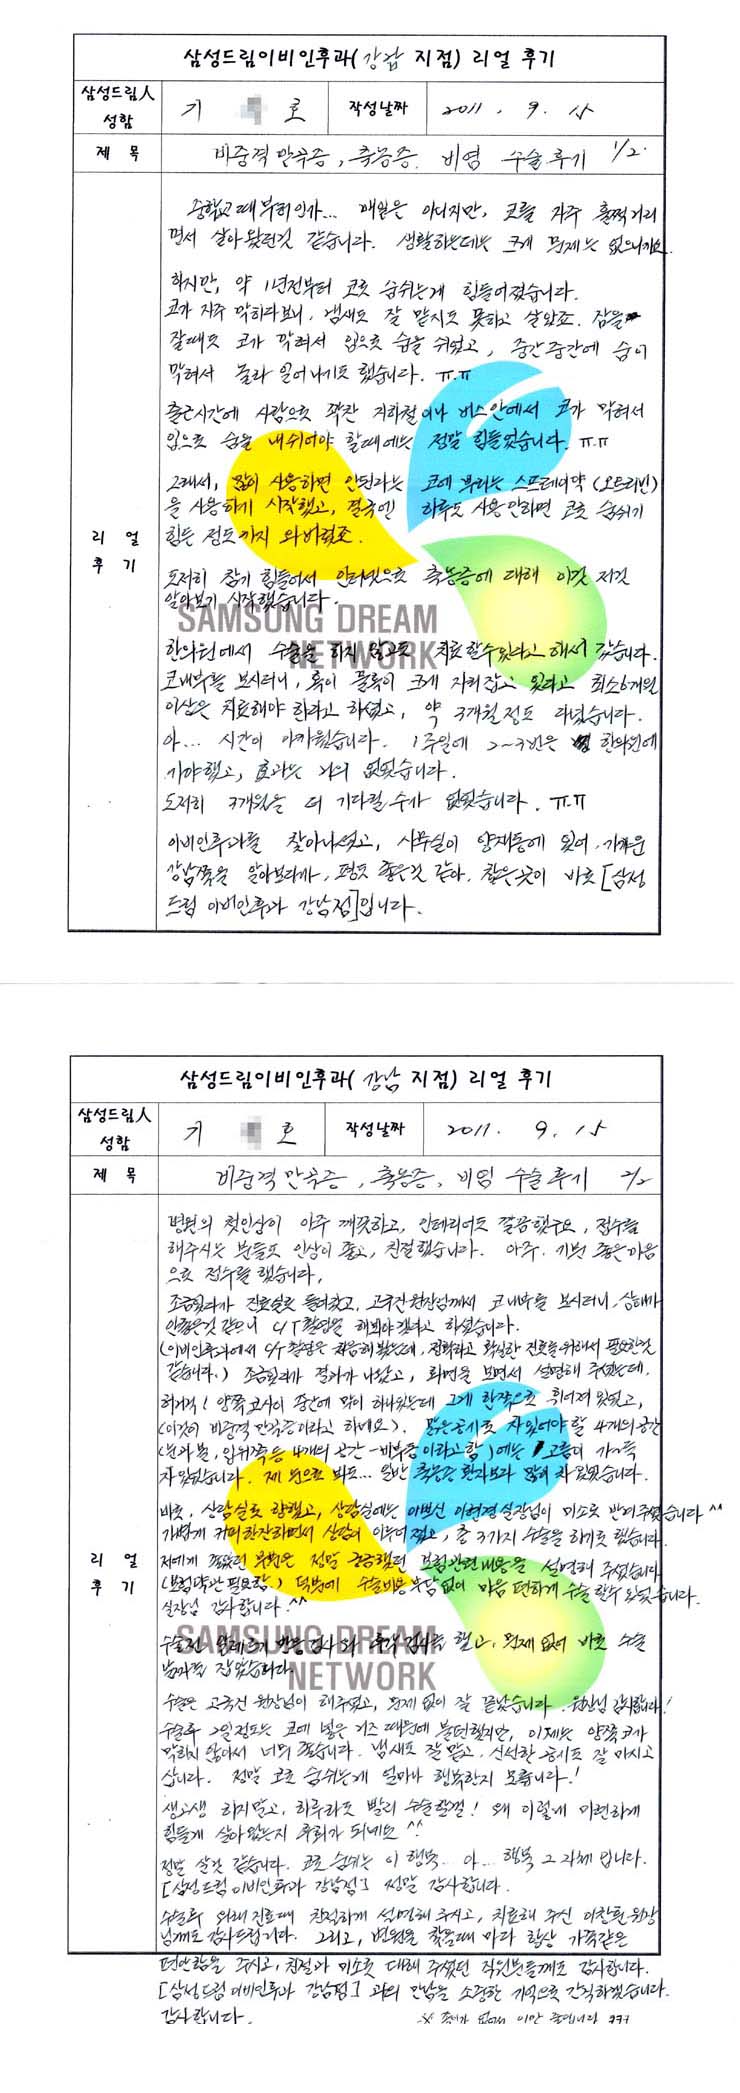 삼성드림이비인후과( 강남 지점) 리얼 후기
삼성드림人
성함
기 호
작성날짜
2011. 9. 15
제 목
비중격만곡증, 축농증, 비염 수술후기 1/2.
중학교때부터인가... 매일은 아니지만, 코를 자주 훌쩍거리
면서 살아왔던것 같습니다. 생활하는데는 크게 문제는 없으니까요.
하지만, 약 1년전부터 코로 숨쉬는게 힘들어졌습니다.
코가 자주 막히다보니, 냄새도 잘 맡지도 못하고 살았죠. 잠을
잘때도 코가 막혀서 입으로 숨을 쉬었고, 중간중간에 숨이
막혀서 놀라 일어나기도 했습니다. ㅠ.ㅠ
출근시간에 사람으로 꽉찬 지하철이나 버스안에서 코가 막혀서
입으로 숨을 내쉬어야 할때에는 정말 힘들었습니다. ㅠ.ㅠ
그래서, 많이 사용하면 안된다는 코에 뿌리는 스프레이약(오트리빈)
을 사용하기 시작했고, 결국엔 하루도 사용안하면 코로 숨쉬기
힘든 정도까지 와버렸죠.
도저히 참기 힘들어서 인터넷으로 축농증에 대해 이것 저것
알아보기 시작했습니다.
SAMSUNG DREAM
NETWORK
한의원에서 수술을 하지 않고도 치료할수있다고 해서 갔습니다.
코내부를 보시더니, 혹이 물혹이 크게 자리잡고 있다고 최소6개월
이상은 치료해야 한다고 하셨고, 약 3개월정도 다녔습니다.
아... 시간이 아까웠습니다. 1주일에 2~3번은 한의원에
가야했고, 효과는 거의 없었습니다.
도저히 3개월을 더 기다릴 수가 없었습니다. ㅠ.ㅠ
이비인후과를 찾아나섰고, 사무실이 양재동에 있어, 가까운
강남쪽을 알아보다가, 평도 좋은것 같아. 찾은곳이 바로 [삼성
드림 이비인후과 강남점]입니다.
리 얼
후 기
삼성드림이비인후과( 강남 지점) 리얼 후기
삼성드림人
성함
기 호
작성날짜
2011. 9. 15
제 목
비중격만곡증, 축농증, 비염 수술후기 2/2
병원의 첫인상이 아주 깨끗하고, 인테리어도 깔끔했구요, 접수를
해주시는 분들도 인상이 좋고, 친절했습니다. 아주. 기분 좋은마음
으로 접수를 했습니다.
조금있다가 진료실로 들어갔고, 고국진원장님께서 코내부를 보시더니, 상태가
안좋은것 같으니 C/T촬영을 해봐야겠다고 하셨습니다.
(이비인후과에서 C/T촬영은 처음해봤는데, 정확하고 확실한 진료를위해서 필요한것
같습니다.) 조금있다가 결과가 나왔고, 화면을 보면서 설명해 주셨는데.
허거걱! 양쪽코사이 중간에 막이 하나있는데 그게 한쪽으로 휘어져있었고,
(이것이 비중격만곡증이라고 하네요). 맑은공기로 차있어야 할 4개의 공간
(눈과 볼, 입위쪽등 4개의 공간-비부동이라고함)에는 고름이 가득
차있었습니다. 제 눈으로 봐도... 일반 축농증 환자보다 많이 차있었습니다.
바로, 상담실로 향했고, 상담실에는 이쁘신 이현경실장님이 미소로 반겨주셨습니다^^
가볍게 커피한잔하면서 상담이 이루어졌고, 총 3가지 수술을 하기로 했습니다.
저에게 좋았던 부분은 정말 궁금했던 보험관련내용을 설명해 주셨습니다
(보험약관 필요함.) 덕분에 수술비용부담없이 마음 편하게 수술할수 있었습니다.
실장님 감사합니다.^^
수술전 알레르기 반응검사와 후각검사를 했고, 문제 없어 바로 수술
날짜를 잡았습니다.
SAMSUNG DREAM
NETWORK
수술은 고국진 원장님이 해주셨고, 문제 없이 잘 끝났습니다. 원장님 감사합니다!
수술후 2일정도는 코에 넣은 거즈 때문에 불편했지만, 이제는 양쪽코가
막히지 않아서 너무 좋습니다. 냄새도 잘 맡고, 신선한 공기도 잘 마시고
삽니다. 정말 코로 숨쉬는게 얼마나 행복한지 모릅니다.!
생고생 하지말고, 하루라도 빨리 수술할껄! 왜 이렇게 미련하게
힘들게 살아왔는지 후회가 되네요^^
정말 살것 같습니다. 코로 숨쉬는 이 행복.. 아... 행복 그 자체 입니다.
[삼성드림이비인후과 강남점] 정말 감사합니다.
수술후 외래진료때 친절하게 설명해 주시고, 치료해 주신 이창훈원장
님께도 감사드립니다. 그리고, 병원을 찾을때 마다 항상 가족같은
편안함을 주시고, 친절과 미소로 대해 주셨던 직원분들께도 감사합니다.
[삼성드림이비인후과 강남점] 과의 만남을 소중한 기억으로 간직하겠습니다.
감사합니다.
리 얼
후 기